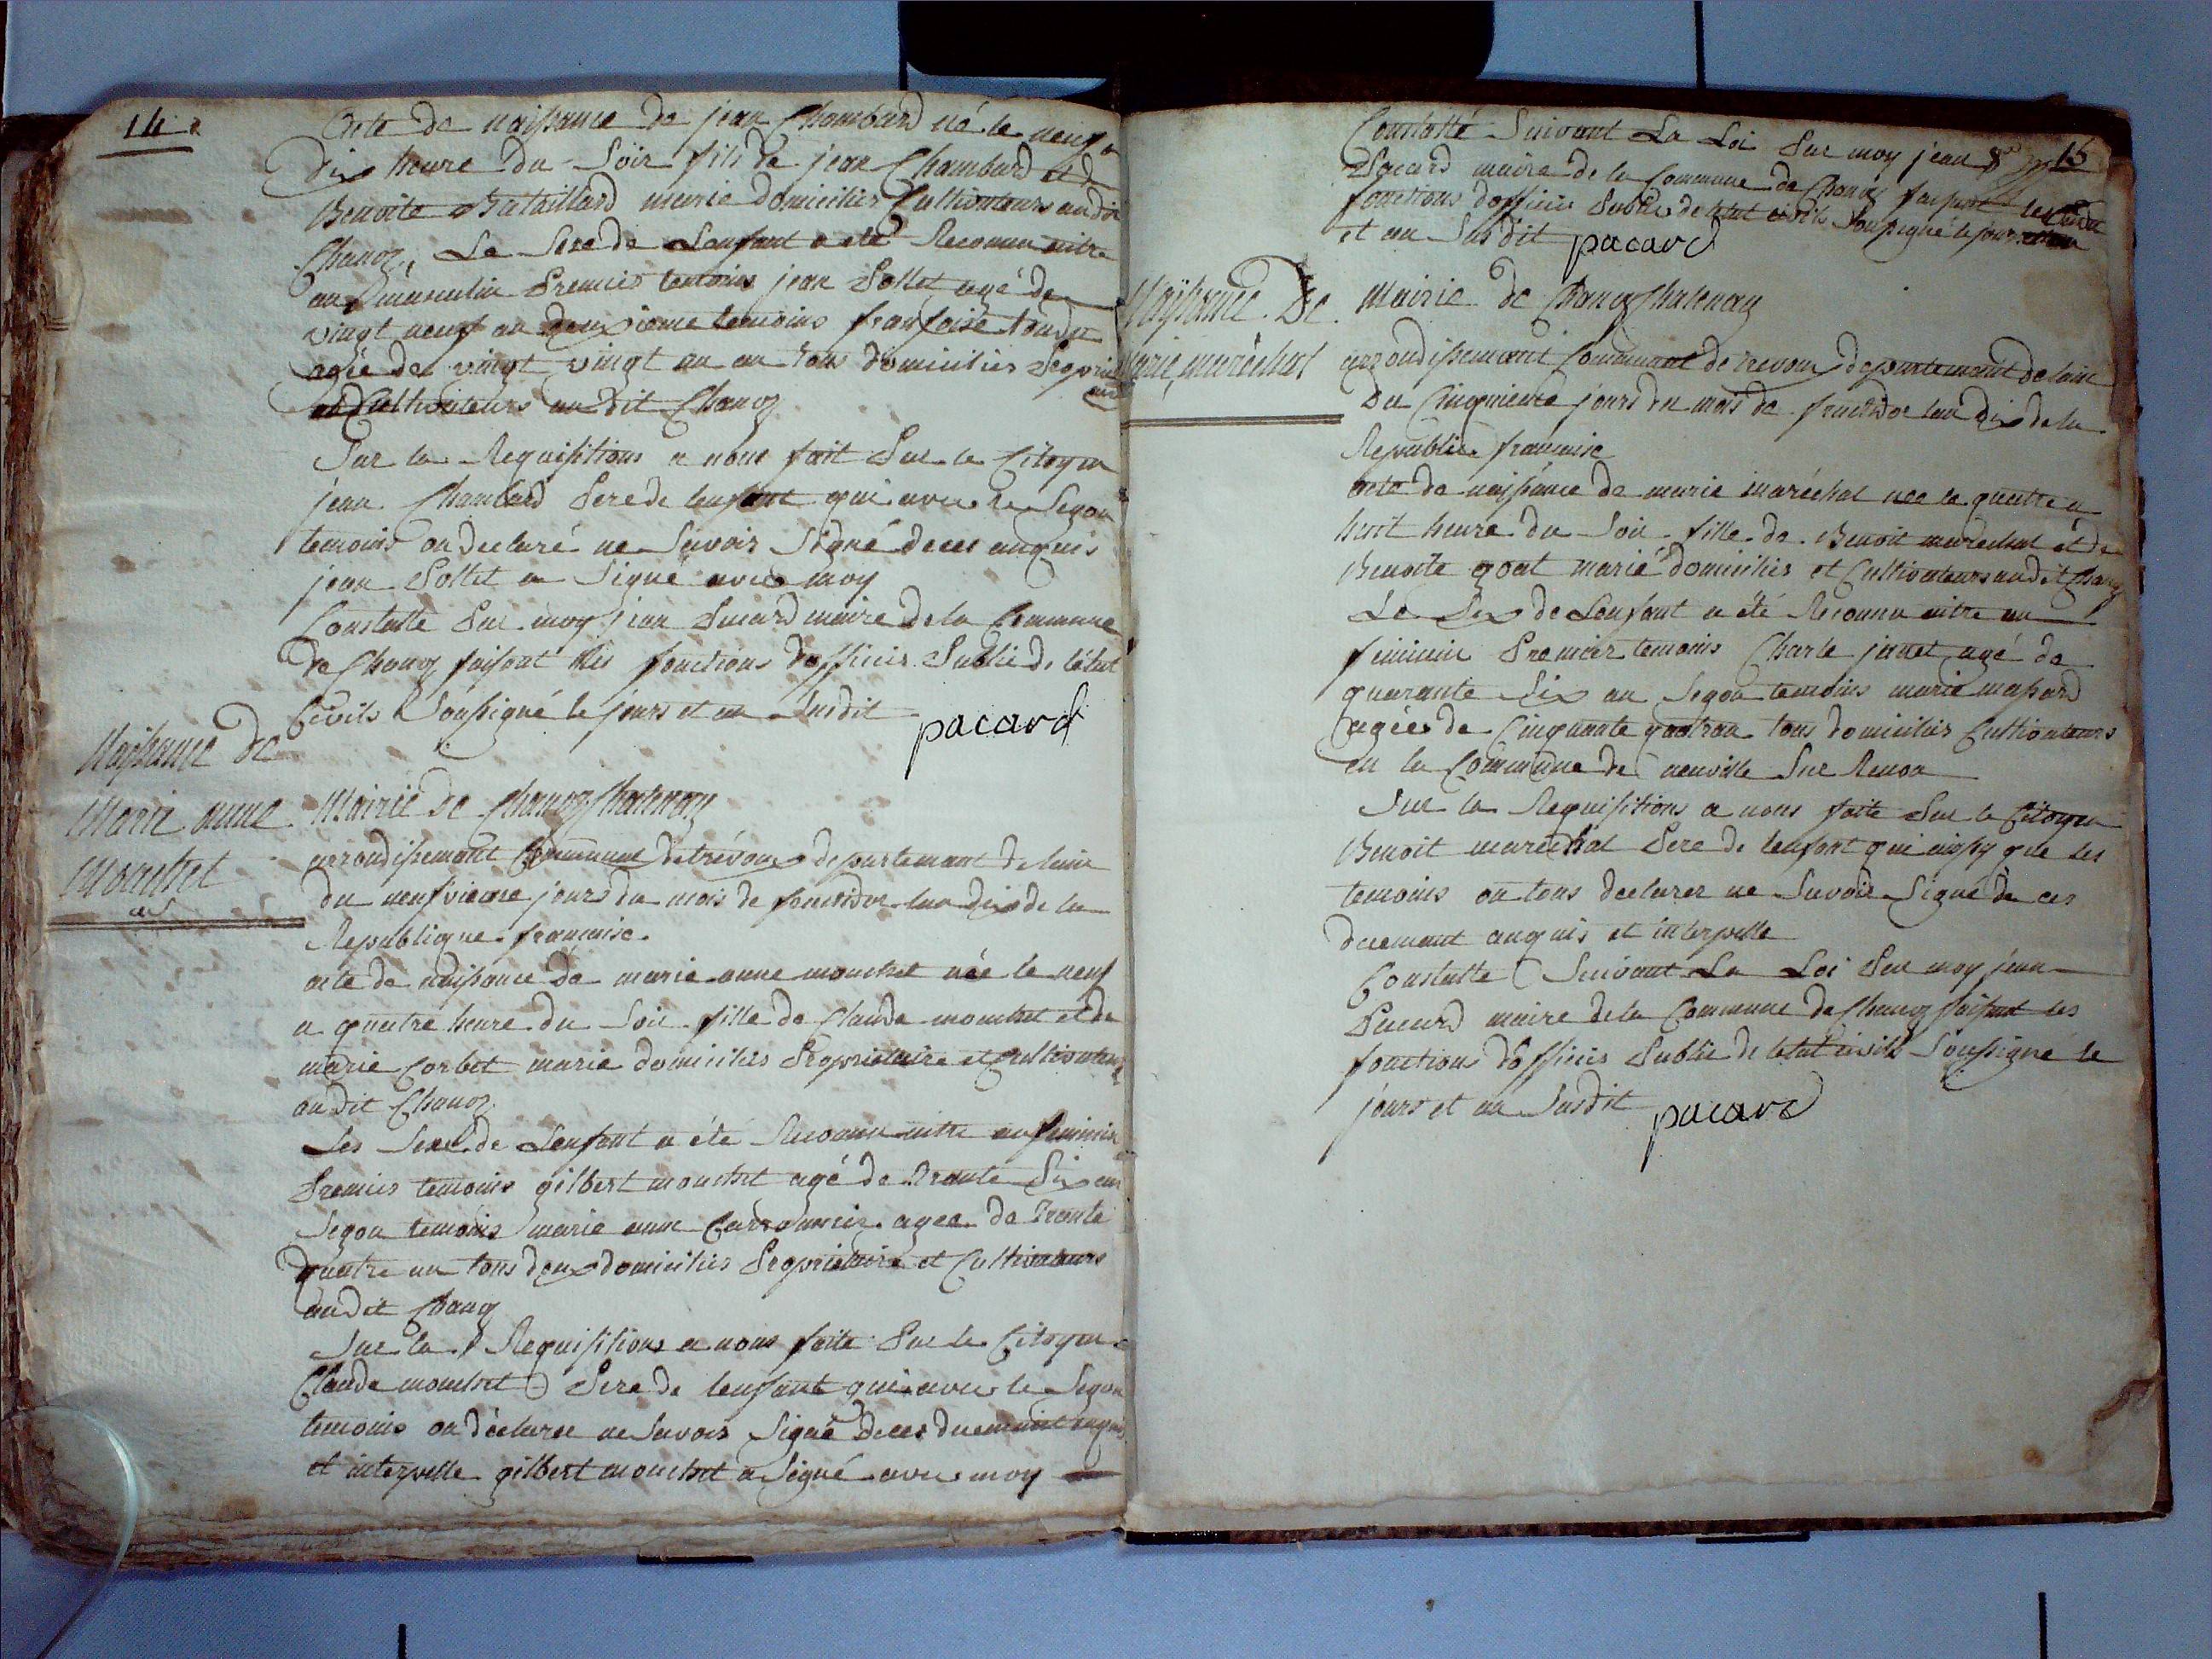 14
acte de naissance de jean Chambard né le neuf a
dix heure du Soir fils de jean Chambard et de
Benoite Bataillard marié domiciliés Cultivateurs audit
Chanoz, Le Sexe de Lenfant a eté Reconnu aitre
au masculin Premier temoins jean Pollet agé de
vingt neuf an deuxieme temoins françoise
agée de vingt vingt un an tous domiciliés Propriétaire
et Cultivateurs audit Chanoz
Sur la Requisitions a nous fait Par le Citoyen
jean Chambard Pere de lenfant qui avec le Segon
temoins on declaré ne Savoir Signé de ces anquis
jean Pollet a Signé avec moy
Constatté Par moy jean Pacard maire de la Commune
de Chanoz faisant les fonctions dofficier Public de létat
Civils Soussigné le jours et an Susdit
pacard
Naissance de
Marie anne
Mouchet
Mairie de Chanoz Chatenay
arrondissemant Communal de trévoux departemant de lain
du neufvieme jours du mois de fructidor lan dix de la
Republique francaise
acte de naissance de marie anne mouchet née le neuf
a quatre heure du Soir fille de Claude mouchet et de
marie Corbet marié domiciliés Propriétaire et Cultivateurs
audit Chanoz
Les Sexe de Lenfant a été Reconnu aitre au feminin
Premier temoins gilbert mouchet agé de trante Six an
Segon temoins marie anne agée de trante
quatre an tous deux domiciliés Propriétaire et Cultivateurs
audit Chanoz
Sur la Requisitions a nous faite Par le Citoyen
Claude mouchet Pere de lenfant qui avec le Segon
temoins on déclarer ne Savoir Signé de ces duemant anquis
et interpelle gilbert mouchet a Signé avec moy
15
Constatté Suivant La Loi Par moy jean
Pacard maire de la Commune de Chanoz faisant les
fonctions dofficier Public de létat civils Soussigné le jours
et an Susdit pacard
Naissance De
Marie maréchal
Mairie de Chanoz Chatenay
arrondissemant Communal de trevoux departemant de lain
Du Cinquieme jours du mois de fructidor lan dix de la
Republique francaise
acte de naissance de marie maréchal née le quatre a
huit heure du Soir fille de Benoit marechal et de
Benoite goat marié domiciliés et Cultivateurs audit Chanoz
Le Sex de Lenfant a été Reconnu aitre au
feminin Premier temoins Charle janet agé de
quarante Six an Segon temoins marie massard
agées de Cinquante quatre an tous domiciliés Cultivateurs
en la Commune de neuville Sur Renon
Sur la Requisitions a nous faite Par le Citoyen
Benoit maréchal Pere de lenfant qui aissy que les
temoins on tous declarer ne Savoir Signé de ces
duemant anquis et interpelle
Constatte Suivant La Loi Par moy jean
Pacard maire de la Commune de Chanoz faisant les
fonctions dofficier Public de létat civils Soussigné le
jours et an Susdit pacard